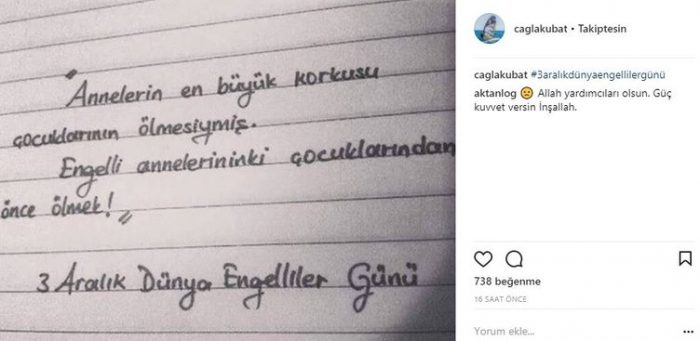 "Annelerin en büyük korkusu
çocuklarının ölmesiymiş.
Engelli annelerininki çocuklarından
önce ölmek!"
3 Aralık Dünya Engelliler Günü
caglakubat • Takiptesin
caglakubat #3aralıkdünyaengellilergünü
aktanlog Allah yardımcıları olsun. Güç
kuvvet versin İnşallah.
738 beğenme
16 SAAT ÖNCE
Yorum ekle...